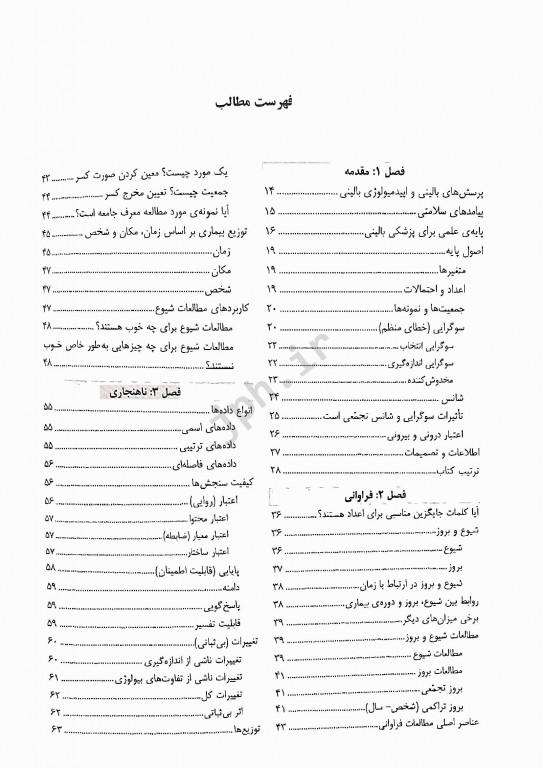 فهرست مطالب
فصل ۱: مقدمه
پرسش‌های بالینی و اپیدمیولوژی بالینی ........................ ۱۴
پیامدهای سلامتی ........................ ۱۵
پایه‌ی علمی برای پزشکی بالینی ........................ ۱۶
اصول پایه ........................ ۱۹
متغیرها ........................ ۱۹
اعداد و احتمالات ........................ ۱۹
جمعیت‌ها و نمونه‌ها ........................ ۲۰
سوگرایی (خطای منظم) ........................ ۲۰
سوگرایی انتخاب ........................ ۲۲
سوگرایی اندازه‌گیری ........................ ۲۲
مخدوش‌کننده ........................ ۲۳
شانس ........................ ۲۴
تأثیرات سوگرایی و شانس تجمّعی است ........................ ۲۵
اعتبار درونی و بیرونی ........................ ۲۶
اطلاعات و تصمیمات ........................ ۲۷
ترتیب کتاب ........................ ۲۸
فصل ۲: فراوانی
آیا کلمات جایگزین مناسبی برای اعداد هستند؟ ........................ ۳۶
شیوع و بروز ........................ ۳۶
شیوع ........................ ۳۶
بروز ........................ ۳۷
شیوع و بروز در ارتباط با زمان ........................ ۳۸
روابط بین شیوع، بروز و دوره‌ی بیماری ........................ ۳۸
برخی میزان‌های دیگر ........................ ۳۹
مطالعات شیوع و بروز ........................ ۳۹
مطالعات شیوع ........................ ۳۹
مطالعات بروز ........................ ۴۱
بروز تجمّعی ........................ ۴۱
بروز تراکمی (شخص- سال) ........................ ۴۱
عناصر اصلی مطالعات فراوانی ........................ ۴۳
یک مورد چیست؟ معین کردن صورت کسر ........................ ۴۳
جمعیت چیست؟ تعیین مخرج کسر ........................ ۴۴
آیا نمونه‌ی مورد مطالعه معرف جامعه است؟ ........................ ۴۴
توزیع بیماری بر اساس زمان، مکان و شخص ........................ ۴۵
زمان ........................ ۴۵
مکان ........................ ۴۷
شخص ........................ ۴۷
کاربردهای مطالعات شیوع ........................ ۴۷
مطالعات شیوع برای چه خوب هستند؟ ........................ ۴۸
مطالعات شیوع برای چه چیزهایی به‌طور خاص خوب
نیستند؟ ........................ ۴۸
فصل ۳: ناهنجاری
انواع داده‌ها ........................ ۵۵
داده‌های اسمی ........................ ۵۵
داده‌های ترتیبی ........................ ۵۵
داده‌های فاصله‌ای ........................ ۵۶
کیفیت سنجش‌ها ........................ ۵۶
اعتبار (روایی) ........................ ۵۶
اعتبار محتوا ........................ ۵۷
اعتبار معیار (ضابطه) ........................ ۵۷
اعتبار ساختار ........................ ۵۷
پایایی (قابلیت اطمینان) ........................ ۵۸
دامنه ........................ ۵۹
پاسخ‌گویی ........................ ۵۹
قابلیت تفسیر ........................ ۵۹
تغییرات (بی‌ثباتی) ........................ ۶۰
تغییرات ناشی از اندازه‌گیری ........................ ۶۰
تغییرات ناشی از تفاوت‌های بیولوژی ........................ ۶۱
تغییرات کل ........................ ۶۲
اثر بی‌ثباتی ........................ ۶۲
توزیع‌ها ........................ ۶۳
Jph.ir